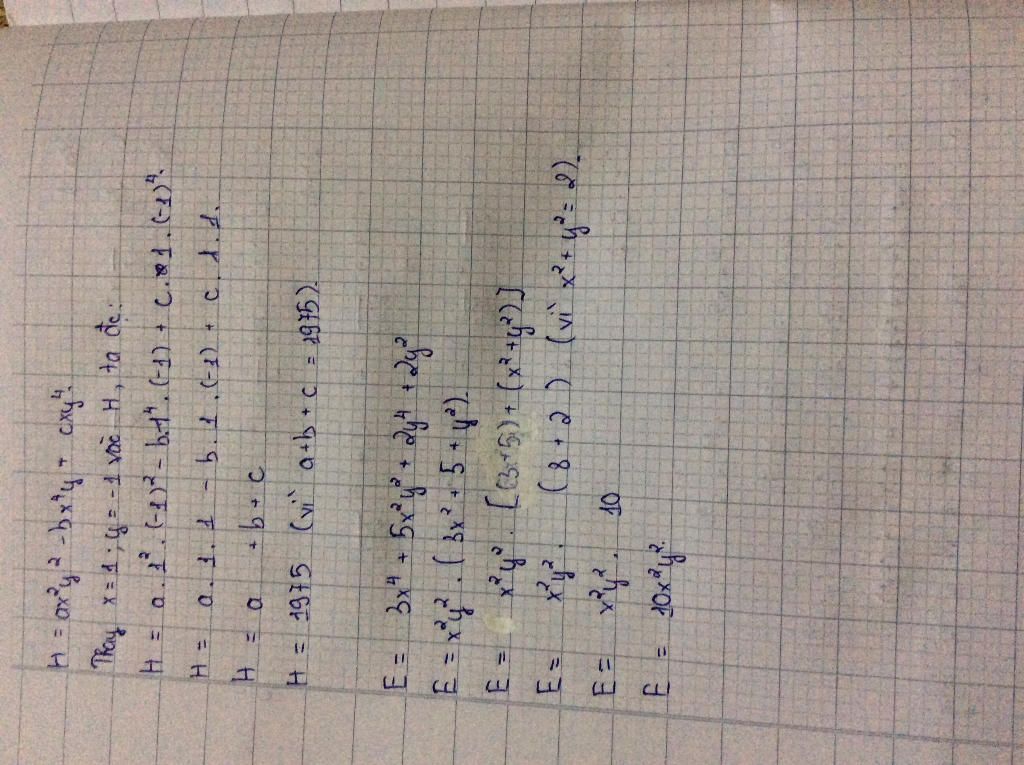 H = ax²y² - bx⁴y + cxy⁴.
Thay x = 1 ; y = -1 vào H, ta đc:
H = a . 1² . (-1)² - b . 1⁴ . (-1) + c . 1 . (-1)⁴.
H = a . 1 . 1 - b . 1 . (-1) + c . 1 . 1.
H = a + b + c
H = 1975 (vì a + b + c = 1975).
E = 3x⁴ + 5x²y² + 2y⁴ + 2y²
E = x²y² . ( 3x² + 5 + y²).
E = x²y² . [(3+5) + (x² + y²)]
E = x²y² . ( 8 + 2 ) (vì x² + y² = 2).
E = x²y² . 10
E = 10x²y².